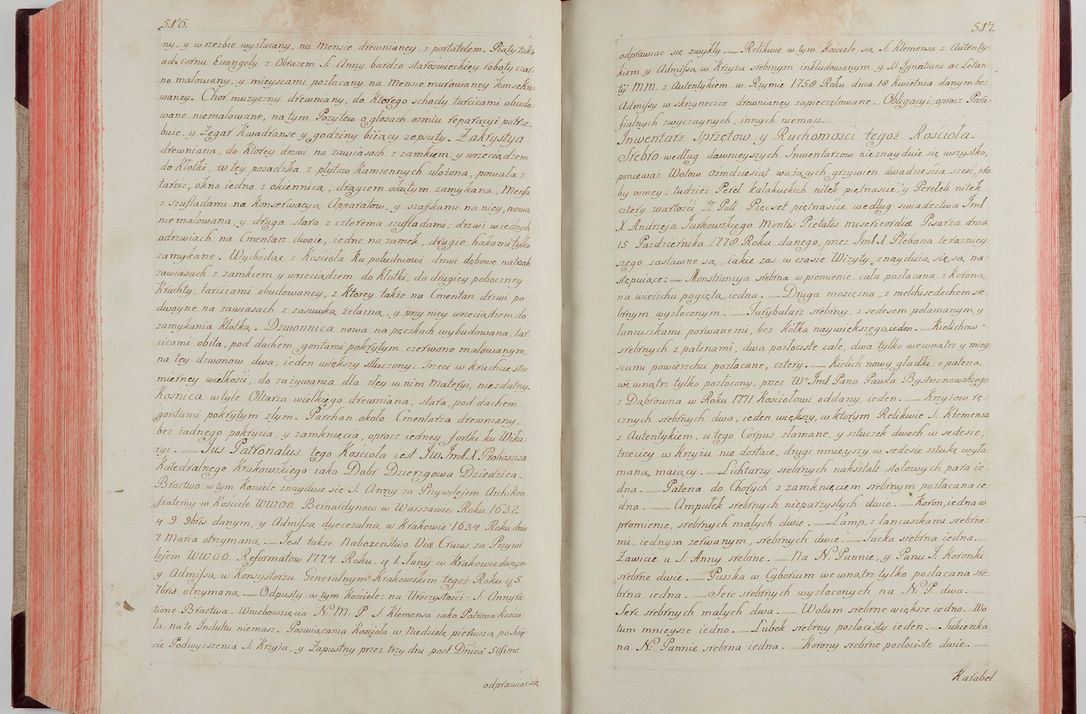 516.
ny, y w rzezbie wyzłacany, na Mensie drewnianey z portatelem. Piąty także
ad Cornu Evangely z Obrazem S. Anny bardzo staroswieckiey roboty czar„
no malowany, y mieyscami pozłacany na Mensie murowaney konsekro„
waney. Chor muzyczny drewniany, do ktorego schody tarcicami obudo„
wane niemalowane, na tym Pozytew o głosach osmiu reparacyi potrze„
buie, y Zegar Kwadranse y godziny biiący zepsuty. Zakrystya
drewniana, do ktorey drzwi na zawiasach z zamkiem, y wrzeciądzem
do Kłotki, w tey posadzka z płytow Kamiennych ułożona, powała z
tarcic, okno iedno z okiennicą, drągiem okutym zamykana, Mensa
z szufladami na konserwacyą Apparatow, y szafkami na niey, nowa
nie malowana, y druga stara z czterema szufladami, drzwi w iednych
odrzwiach na Cmentarz dwoie, iedne na zamek, drugie hakami tylko
zamykane. Wychodząc z Kościoła ku południowi drzwi dębowe na trzech
zawiasach z zamkiem, y wrzeciądzem do Kłotki, do drugiey poboczney
Kruchty, tarcicami obudowaney, z Ktorey także na Cmentarz drzwi po
dwoyne na zawiasach z zasuwką żelazną, y przy niey wrzeciądzem do
zamykania Kłotką. Dzwonnica nowa na pęczkach wybudowana, tar„
cicami obita, pod dachem gontami pokrytym czerwono malowanym,
na tey dzwonow dwa, ieden większy stłuczony. Trzeci w Kruchcie stoi
mierney wielkości, do zazywania dla złey w nim Materyi, niezdatny.
Kosnica w tyle Ołtarza wielkiego drewniana, stara, pod dachem
gontami pokrytym złym. Parchan około Cmentarza drewniany,
bez żadnego pokrycia, y zamknięcia, oprocz iedney fortki ku Wika„
ryi. — Jus Patronatus tego Kościoła iest Jw. Jmć X. Proboszcza
Katedralnego Krakowskiego iako Dobr Dzierzgowa Dziedzica.
Bractwo w tym Kościele znayduie się S. Anny za Przywileiem Archikon„
fraterny w Kościele WWOO. Bernardynow w Warszawie Roku 1632.
y 9. 9bris danym, y Admissą dyecezalną, w Krakowie 1634 Roku dnia
7 Marca otrzymaną. — Jest także Nabożenstwo Via Crucis za Przywi„
lejem WWOO. Reformatow 1774 Roku, y 1. Juny w Krakowie danym
y Admissą w Konsystorzu Generalnym Krakowskim tegoż Roku y 5
7bris otrzymaną. — Odpusty w tym Kościele: na Uroczystość S. Anny ra„
tione Bractwa. Wniebowzięcia N. M. P. S. Klemensa iako Patrona Kościo„
ła, na te Indultu niemasz. Poswiącania Kościoła w Niedzielę pierwszą po Swię„
cie Podwyzszenia S. Krzyża, y Zapustny przez trzy dni post Dnicã 50simę
odprawiac się
517.
odprawiac się zwykły. — Relikwie w tym Kościele są S. Klemensa z Autenty„
kiem y Admissą w Krzyżu srebrnym inkludowanym, y SS. Ignatiani ac Letan„
tij MM. z Autentykiem w Rzymie 1750 Roku dnia 18 kwietnia danym bez
Admissy w skrzyneczce drewnianey zapieczętowane. Obligacyi, oprocz Para„
fialnych zwyczaynych, innych niemasz.
Inwentarz Sprzętow, y Ruchomosci tegoż Kościoła.
Srebro według dawnieyszych Inwentarzow nieznayduie się wszystko,
ponieważ Wotow osmdziesiąt ważących grzywien dwadzieścia szesc, pro„
by osmey, tudzież Pereł kałakuckich nitek piętnaście, y Perełek nitek
cztery wartości Zł. Pol. Pięcset piętnaście według swiadectwa Jmć
X Andrzeja Jurkowskiego Montis Pietatis misericordiæ Pisarza dnia
15 Pazdziernika 1778 Roku danego, przez Jmć X. Plebana teraznicy„
szego zastawione są, iakie zas w czasie Wizyty, znayduią się, są na„
stępuiące: — Monstrancya srebrna w promienie, cała pozłacana, z koroną
na wierzchu pogiętą, iedna. — Druga miesięczna, z melchisedechem sre„
brnym wyzłoconym. — Turybularz srebrny, z sedesem połamanym, y
łancuszkami porwanemi, bez kołka naywiększego, ieden. — Kielichow
srebrnych z patenami, dwa pozłociste całe, dwa tylko we wnątrz y miey„
scami powierzchu pozłacane, cztery. — Kielich nowy gładki z pateną,
we wnątrz tylko pozłocony, przez Wo Jmć Pana Pawła Bystrzonowskiego
z Dąbrowna w Roku 1771 Kościołowi oddany, ieden. — Krzyżow rę„
cznych srebrnych dwa, ieden większy, w ktorym Relikwie S. Klemensa
z Autentykiem, u tego Corpus złamane, y sztuczek dwoch w sedesie,
trzeciey w Krzyżu nie dostaie, drugi mnieyszy w sedesie sztukę wyła„
maną maiący. — Lichtarzy srebrnych nakształt stołowych para ie„
dna. — Patena do Chorych z zamknięciem srebrnym pozłacana ie„
dna. — Ampułek srebrnych nieparzystych dwie. — Koron, iedna w
promienie, srebrnych małych dwie. — Lamp, z łancuszkami srebrne„
mi, iednym zerwanym, srebrnych dwie. — Tacka srebrna iedna.
Zawicie u S. Anny srebrne. — Na N. Pannie, y Panu J. Koronki
srebrne dwie. — Puszka w Cyborium we wnątrz tylko pozłacana sre„
brna iedna. — Serc srebrnych wyzłoconych na N. P. dwa. —
Serc srebrnych małych dwa. — Wotum srebrne większe iedno. — Wo„
tum mnieysze iedno. — Lubek srebrny pozłocisty ieden. — Sukienka
na N. Pannie srebrna iedna. — Korony srebrne pozłociste dwie. —
Karabel